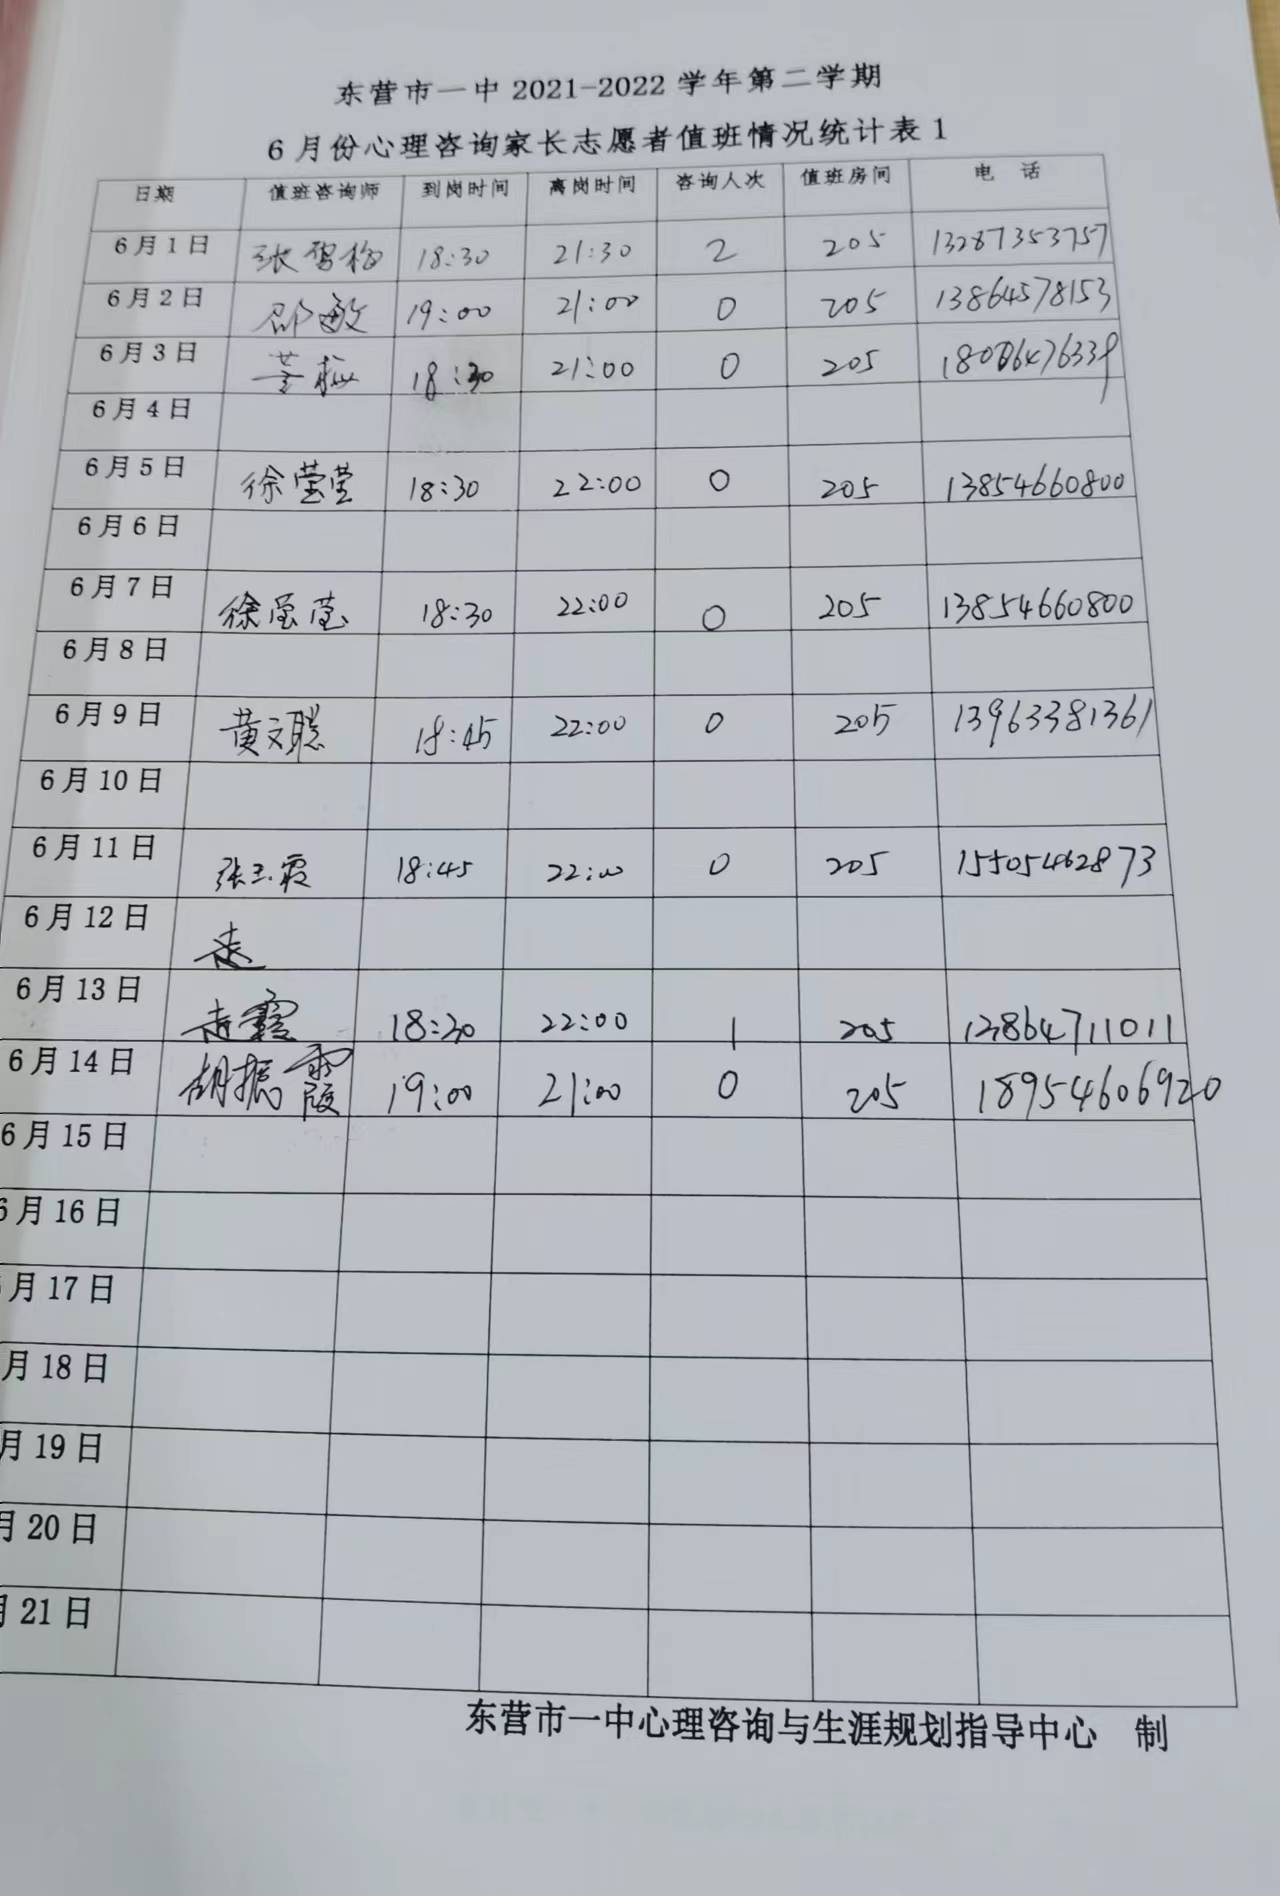 东营市一中2021-2022学年第二学期
6月份心理咨询家长志愿者值班情况统计表1
日期 值班咨询师 到岗时间 离岗时间 咨询人次 值班房间 电 话
6月1日 张 18:30 21:30 2 205 13287353757
6月2日 邵敏 19:00 21:00 0 205 13864578153
6月3日 18:30 21:00 0 205
6月4日
6月5日 徐莹莹 18:30 22:00 0 205 13854660800
6月6日
6月7日 徐莹莹 18:30 22:00 0 205 13854660800
6月8日
6月9日 黄文聪 18:45 22:00 0 205 13963381361
6月10日
6月11日 张玉霞 18:45 22:00 0 205 15505462873
6月12日 赵
6月13日 赵霞 18:30 22:00 1 205 13864711011
6月14日 胡振霞 19:00 21:00 0 205 18954606920
6月15日
6月16日
月17日
月18日
月19日
月20日
月21日
东营市一中心理咨询与生涯规划指导中心 制